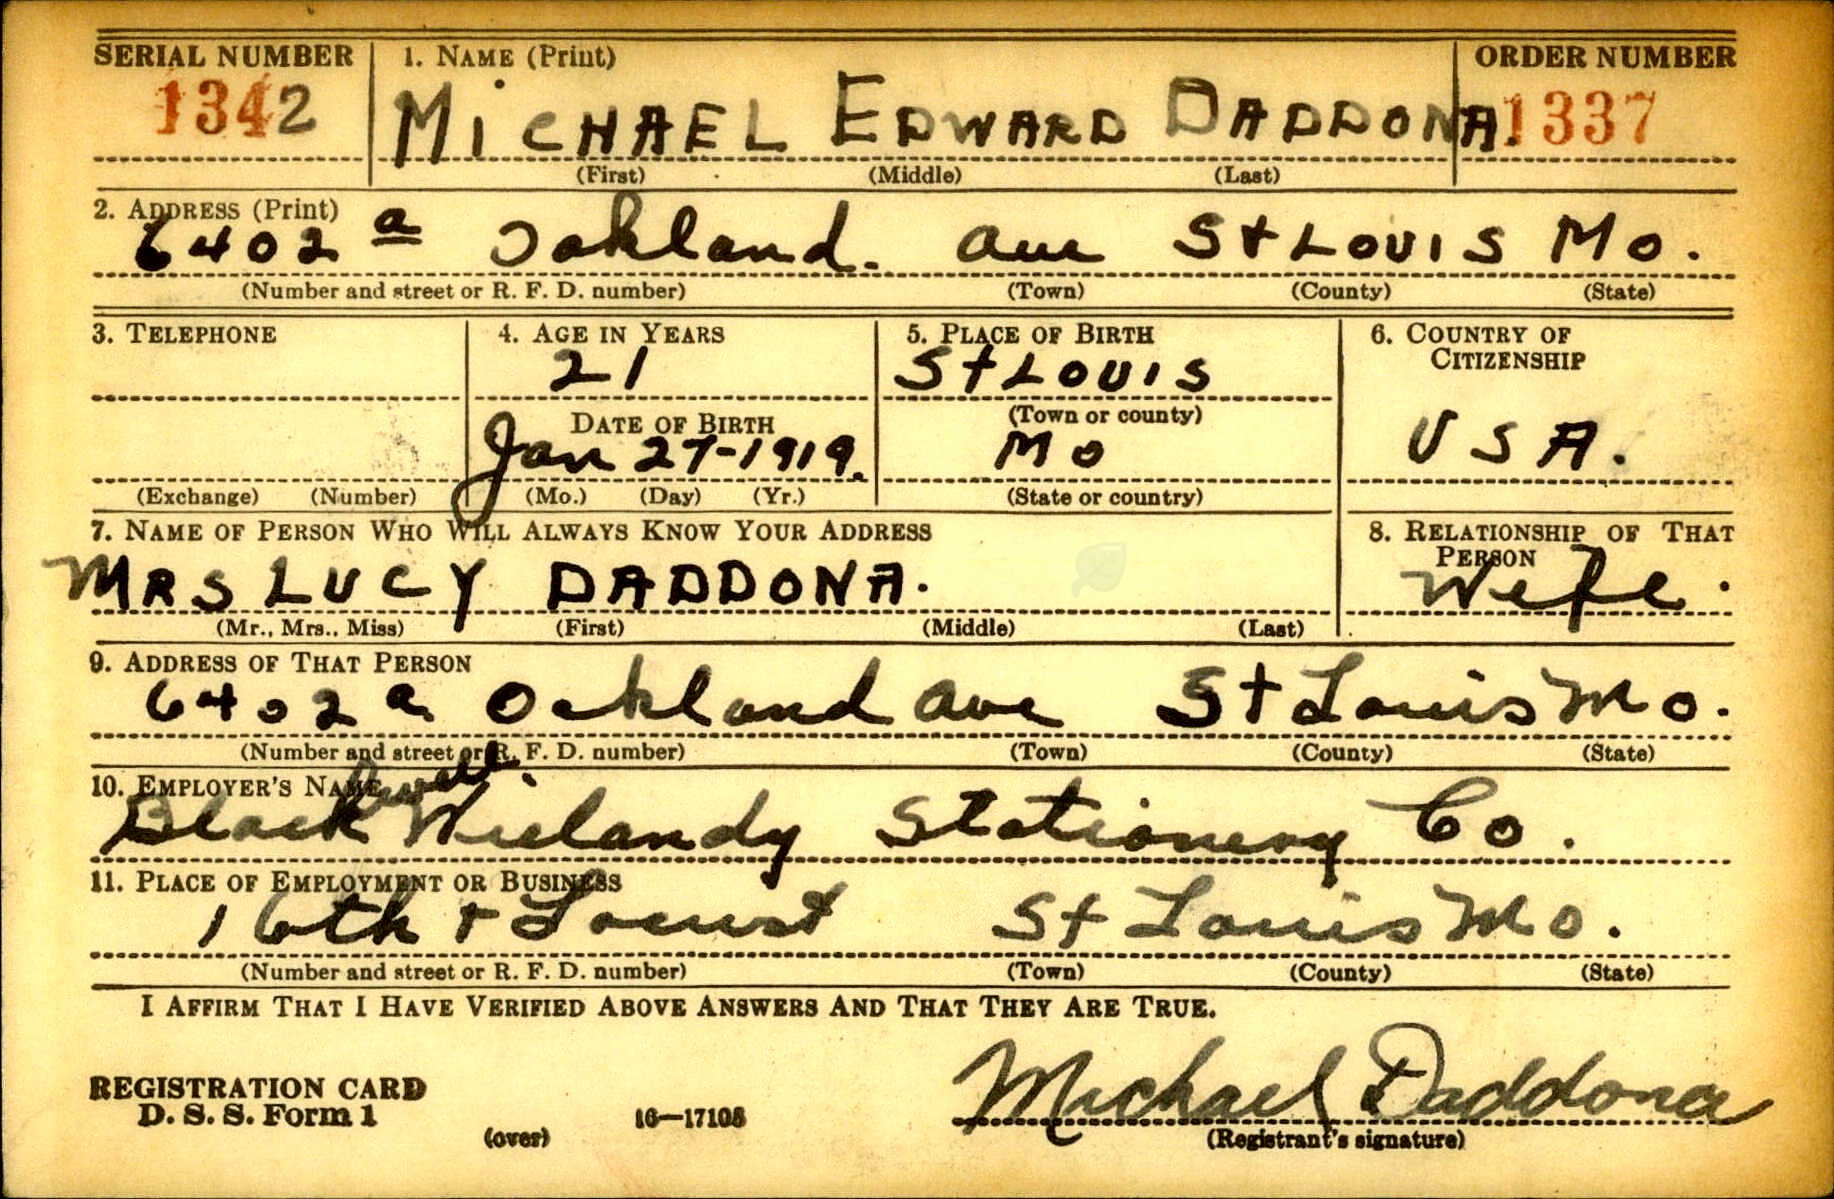 SERIAL NUMBER 1. NAME (Print) ORDER NUMBER
1342 MICHAEL EDWARD DADDONA. 1337
(First) (Middle) (Last)
2. ADDRESS (Print)
6402 a Oakland. Ave St LOUIS MO.
(Number and street or R. F. D. number) (Town) (County) (State)
3. TELEPHONE 4. AGE IN YEARS 5. PLACE OF BIRTH 6. COUNTRY OF
CITIZENSHIP
21 St LOUIS
DATE OF BIRTH (Town or county)
Jan 27-1919. MO USA.
(Exchange) (Number) (Mo.) (Day) (Yr.) (State or country)
7. NAME OF PERSON WHO WILL ALWAYS KNOW YOUR ADDRESS 8. RELATIONSHIP OF THAT
PERSON
MRS LUCY DADDONA. Wife.
(Mr., Mrs., Miss) (First) (Middle) (Last)
9. ADDRESS OF THAT PERSON
6402 a Oakland Ave St Louis Mo.
(Number and street or R. F. D. number) (Town) (County) (State)
10. EMPLOYER'S NAME
Blackwell Wielandy Stationery Co.
11. PLACE OF EMPLOYMENT OR BUSINESS
16th + Locust St Louis Mo.
(Number and street or R. F. D. number) (Town) (County) (State)
I AFFIRM THAT I HAVE VERIFIED ABOVE ANSWERS AND THAT THEY ARE TRUE.
Michael Daddona
REGISTRATION CARD
D. S. S. Form 1 (over) 16—17105 (Registrant's signature)